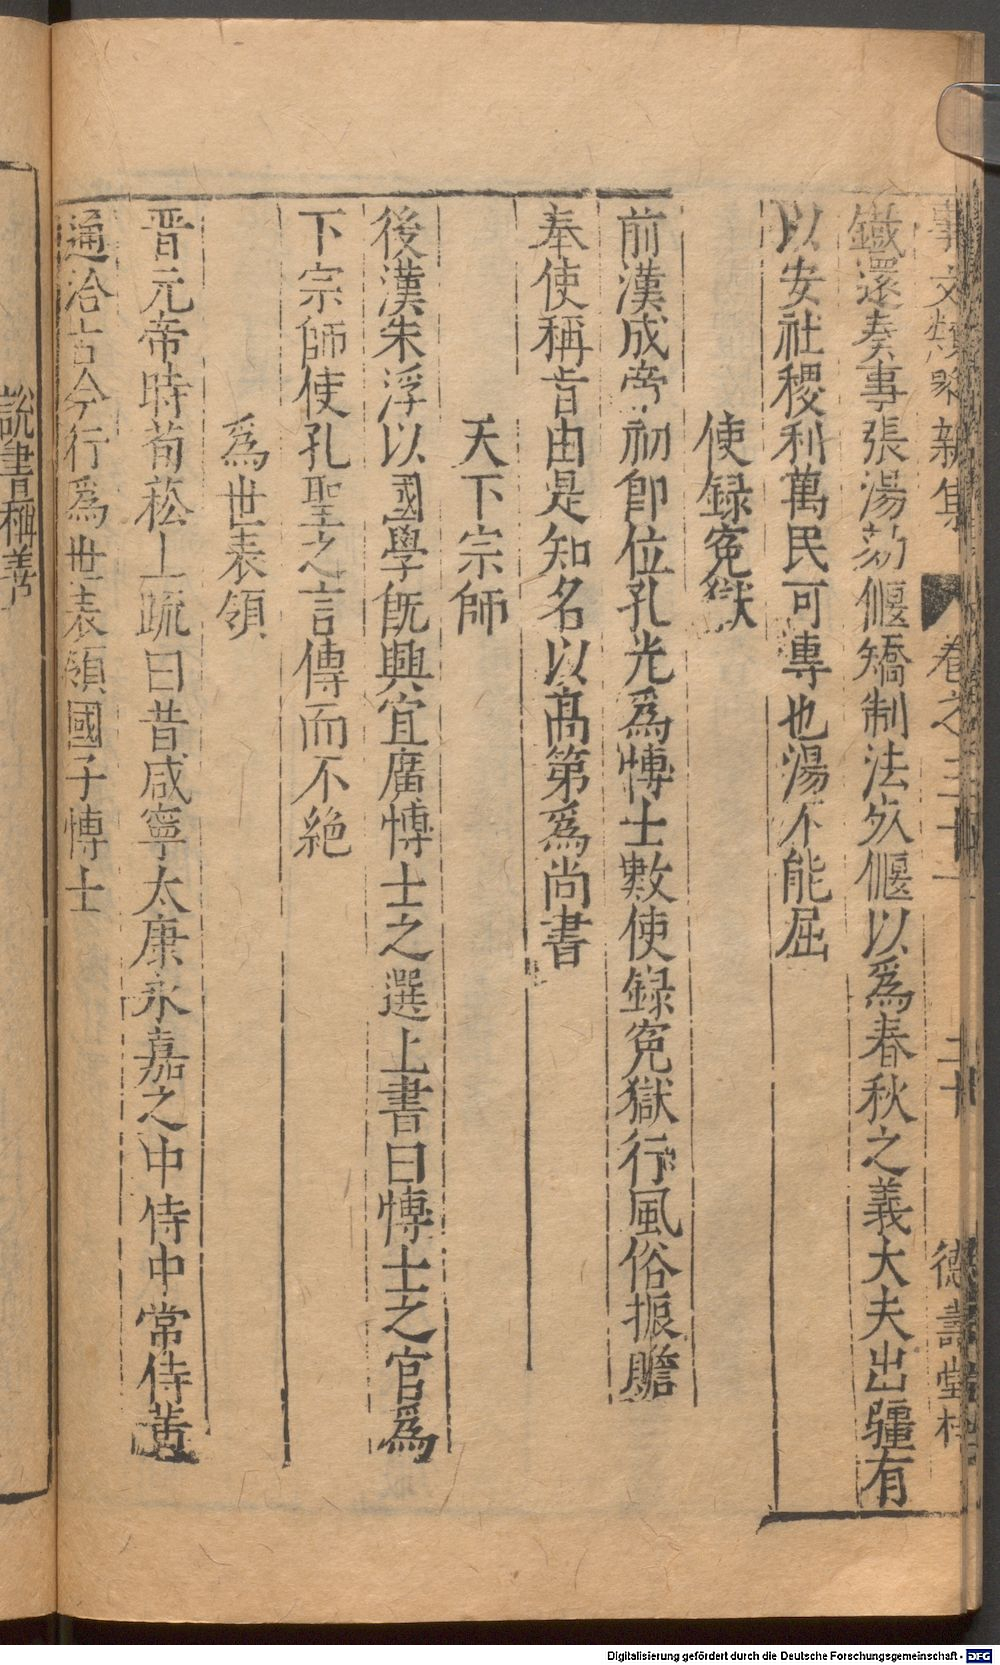 事文類聚新集　卷之三十二　二十　德壽堂梓
鐵還奏事張湯劾偃矯制法死偃以爲春秋之義大夫出疆有
以安社稷利萬民可專也湯不能屈
使録寃獄
前漢成帝初卽位孔光爲博士數使録寃獄行風俗振贍
奉使稱旨由是知名以髙第爲尚書
天下宗師
後漢朱浮以國學旣興宜廣博士之選上書曰博士之官爲
下宗師使孔聖之言傳而不絶
爲世表領
晋元帝時荀菘上疏曰昔咸寧太康永嘉之中侍中常侍黄
通洽古今行爲世表領國子博士
說書稱善
Digitalisierung gefördert durch die Deutsche Forschungsgemeinschaft - DFG